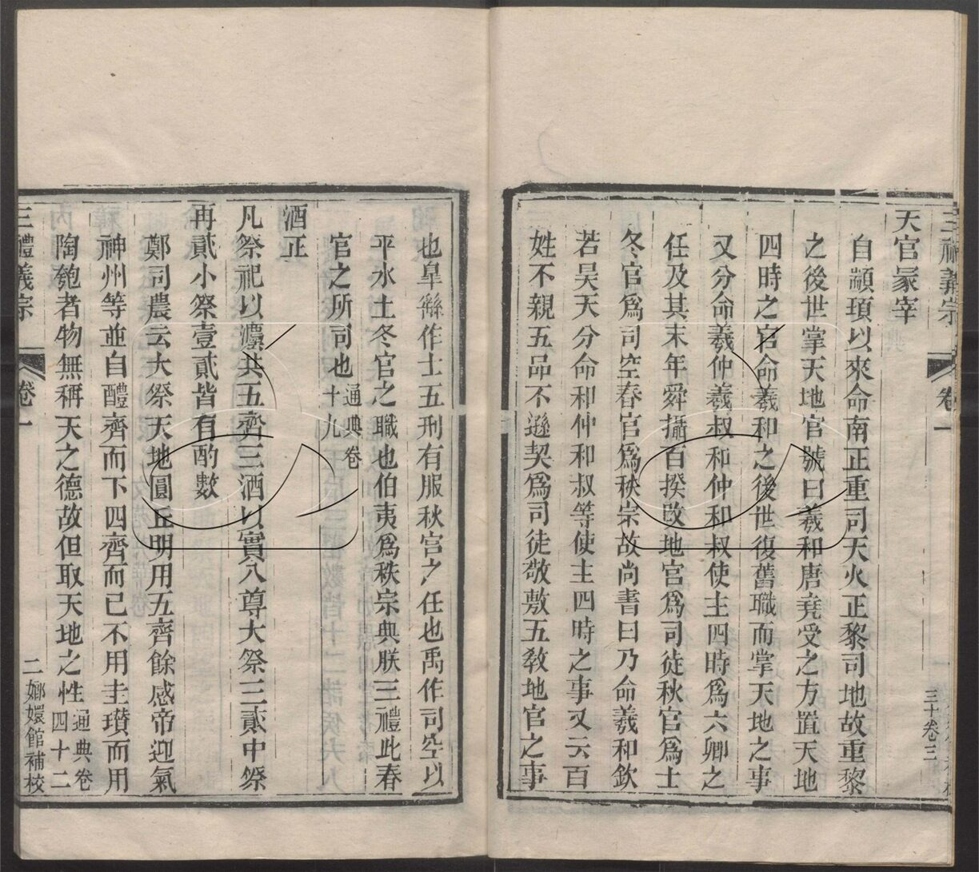 三禮義宗 卷一
三十卷三
天官冢宰
自顓頊以來命南正重司天火正黎司地故重黎
之後世掌天地官號曰羲和唐堯受之方置天地
四時之官命羲和之後世復舊職而掌天地之事
又分命羲仲羲叔和仲和叔使主四時爲六卿之
任及其末年舜攝百揆改地官爲司徒秋官爲士
冬官爲司空春官爲秩宗故尚書曰乃命羲和欽
若昊天分命和仲和叔等使主四時之事又云百
姓不親五品不遜契爲司徒敬敷五敎地官之事
也臯繇作士五刑有服秋官之任也禹作司空以
平水土冬官之職也伯夷爲秩宗典朕三禮此春
官之所司也通典卷十九
酒正
凡祭祀以灋共五齊三酒以實八尊大祭三貳中祭
再貳小祭壹貳皆有酌數
鄭司農云大祭天地圓丘明用五齊餘感帝迎氣
神州等並自醴齊而下四齊而已不用圭瓚而用
陶匏者物無稱天之德故但取天地之性通典卷四十二
三禮義宗 卷一
二 嫏嬛館補校